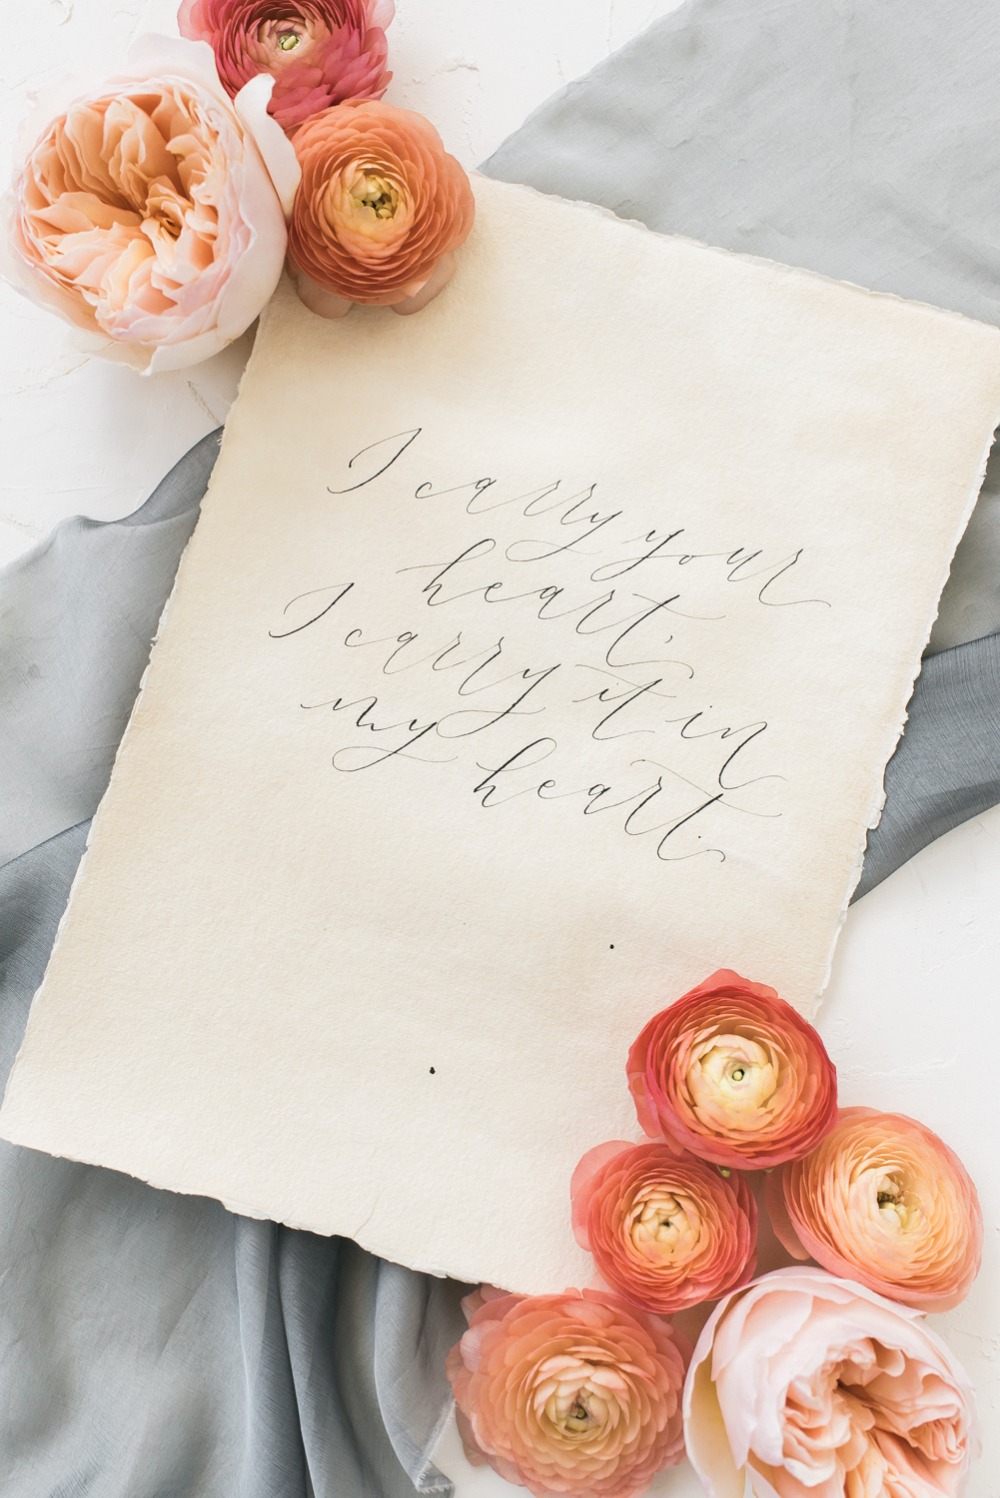 I carry your
heart,
I carry it in
my heart.